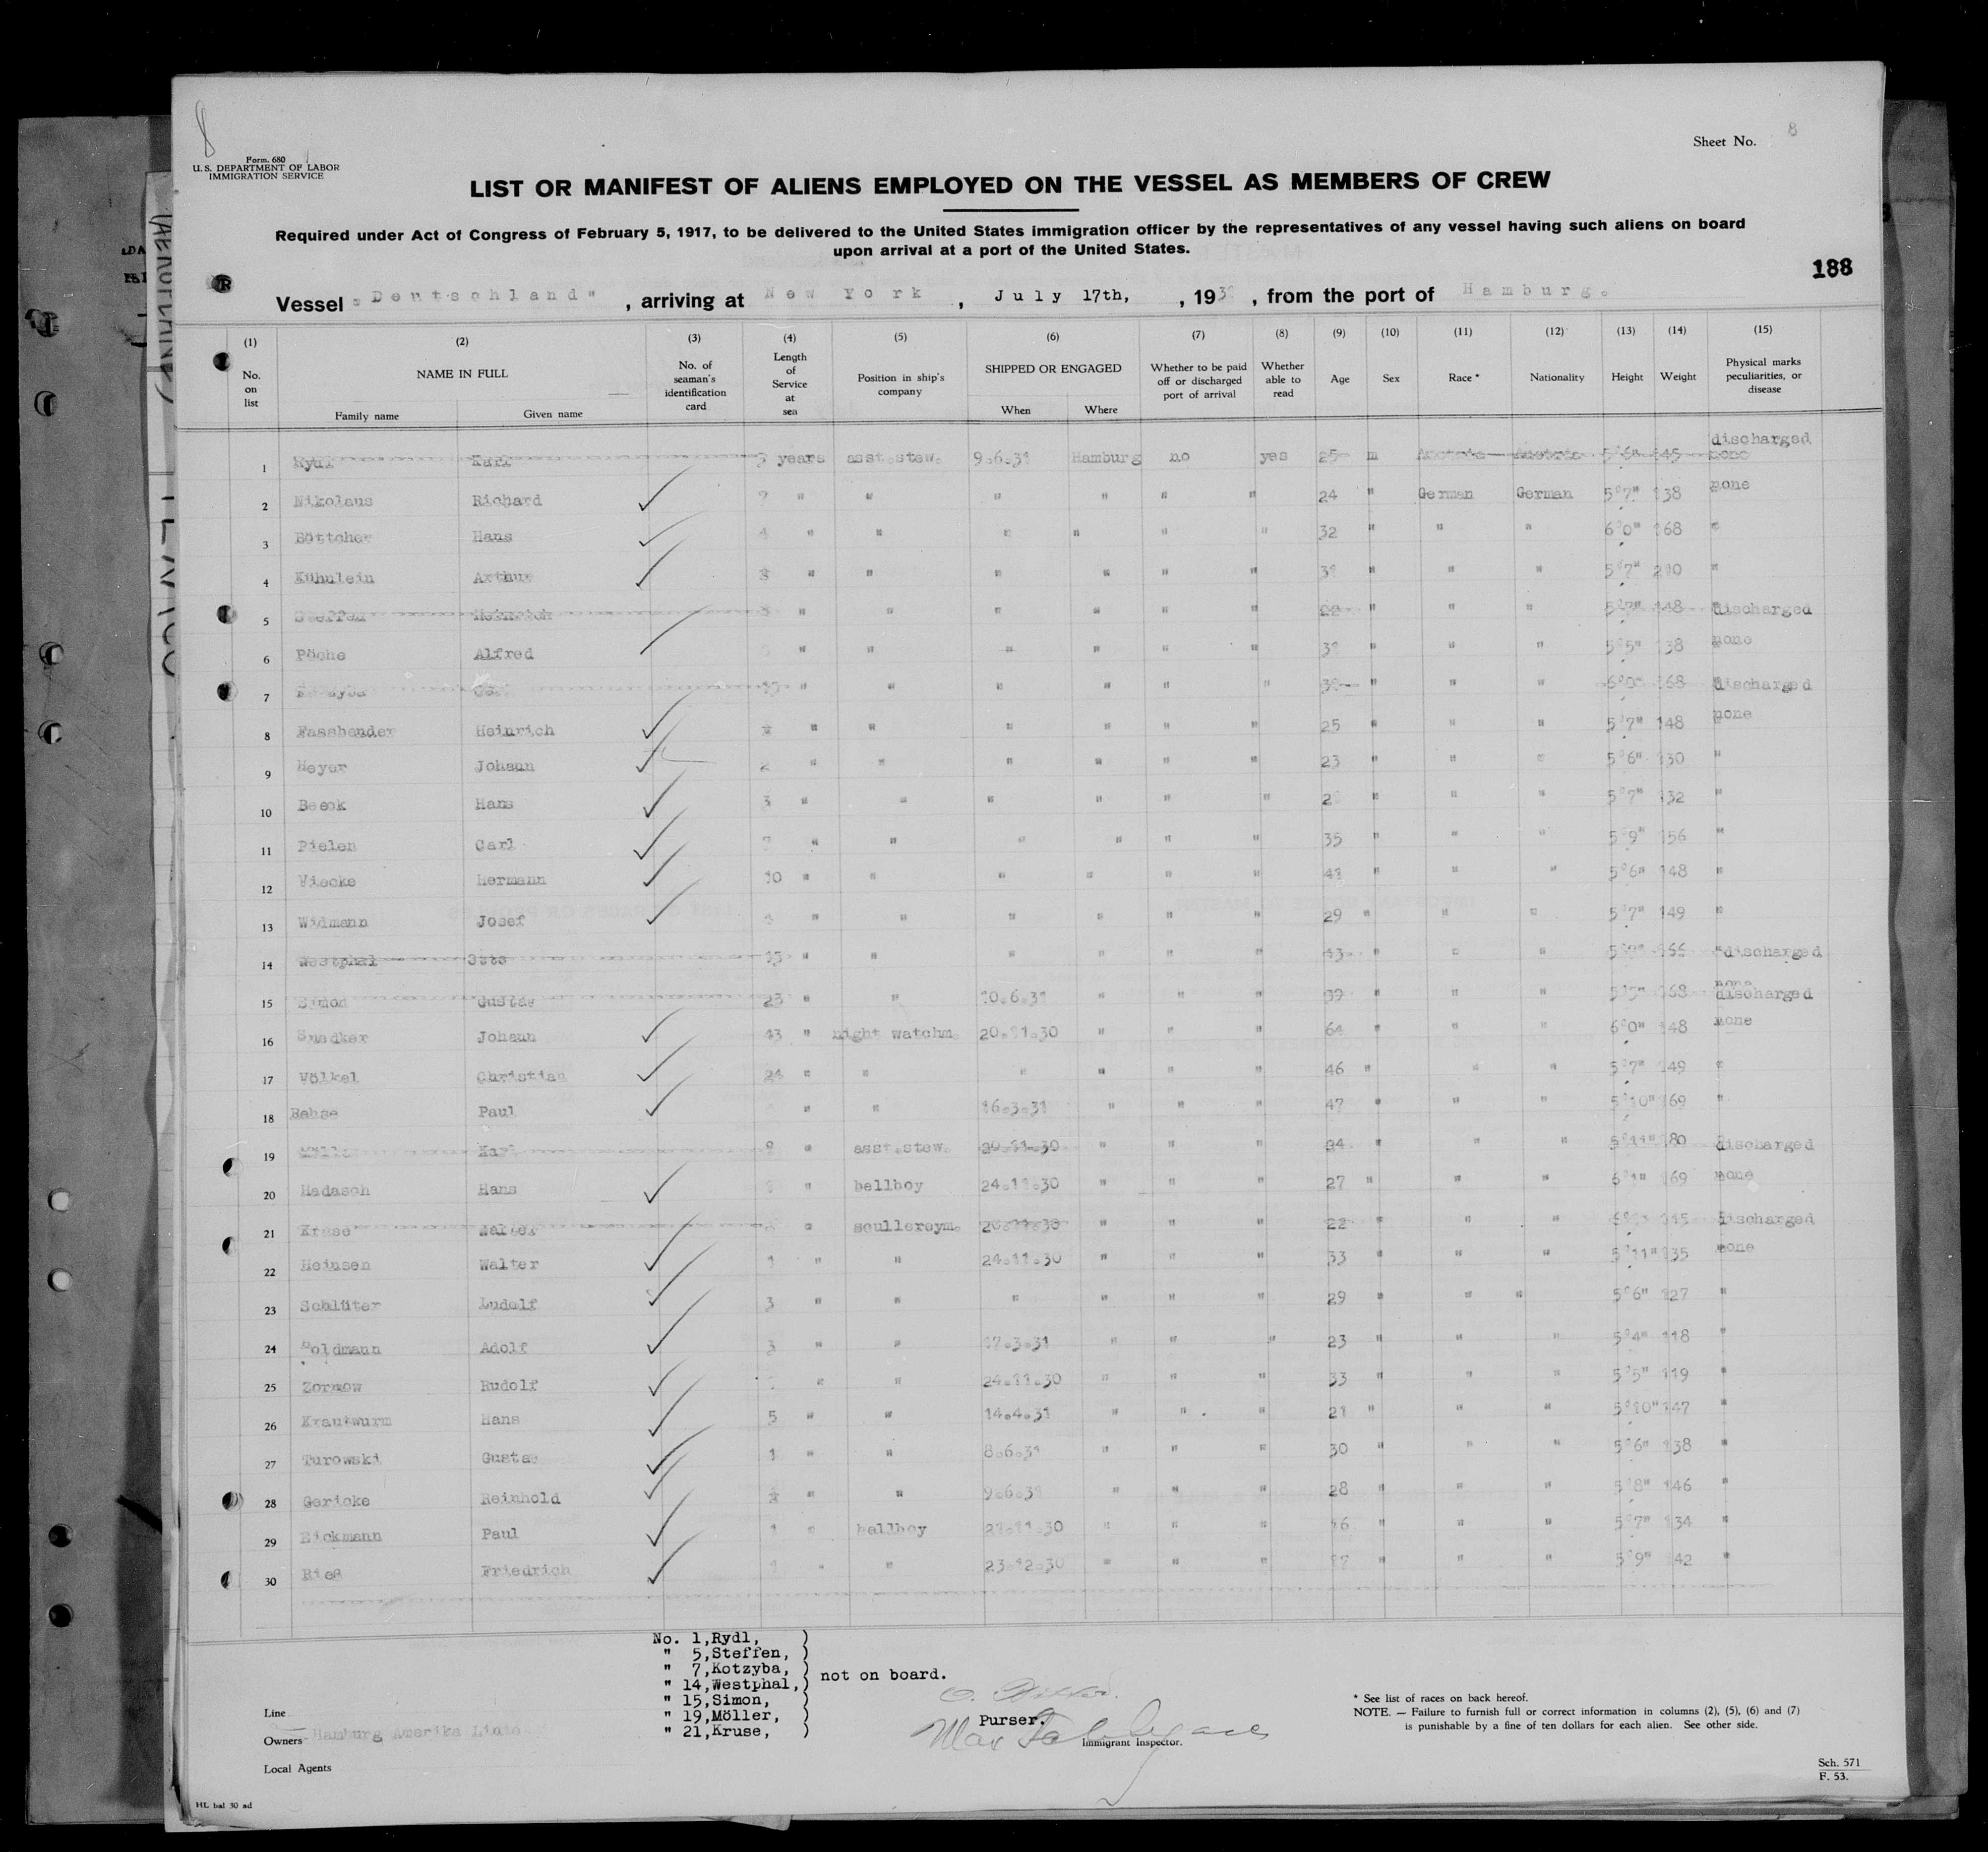 8
Sheet No. 8
Form. 680
U. S. DEPARTMENT OF LABOR
IMMIGRATION SERVICE
LIST OR MANIFEST OF ALIENS EMPLOYED ON THE VESSEL AS MEMBERS OF CREW
Required under Act of Congress of February 5, 1917, to be delivered to the United States immigration officer by the representatives of any vessel having such aliens on board
upon arrival at a port of the United States.
188
Vessel "Deutschland", arriving at New York, July 17th, , 1931, from the port of Hamburg.
(1) (2) (3) (4) (5) (6) (7) (8) (9) (10) (11) (12) (13) (14) (15)
No. on list
NAME IN FULL
Family name Given name
No. of seaman's identification card
Length of Service at sea
Position in ship's company
SHIPPED OR ENGAGED
When Where
Whether to be paid off or discharged port of arrival
Whether able to read
Age
Sex
Race *
Nationality
Height
Weight
Physical marks peculiarities, or disease
1 Rydl Karl years asst.stew. 9.6.31 Hamburg no yes 25 m 5'6" 145 none discharged
2 Nikolaus Richard " " " " " " 24 " German German 5'7" 138 none
3 Böttcher Hans 4 " " " " " " 32 " " " 6'0" 168 "
4 Kühnlein Arthur " " " " " " " " " 5'7" 210 "
5 Steffen Heinrich " " " " " " 22 " " " 5'7" 148 discharged
6 Pöche Alfred " " " " " " " " " 5'5" 138 none
7 Kotzyba 15 " " " " " " " " " 6'0" 168 discharged
8 Fassbender Heinrich " " " " " " 25 " " " 5'7" 148 none
9 Meyer Johann 2 " " " " " " 23 " " " 5'6" 130 "
10 Beeck Hans 3 " " " " " " " " " 5'7" 132 "
11 Pielen Carl 7 " " " " " " 35 " " " 5'9" 156 "
12 Viecke Hermann 10 " " " " " " 41 " " " 5'6" 148 "
13 Widmann Josef " " " " " " 29 " " " 5'7" 149 "
14 Westphal Otto 15 " " " " " " 43 " " " 166 "discharged
15 Simon Gustav 23 " " 10.6.31 " " " 39 " " " 5'5" 168 none discharged
16 Johann 43 " night watchm. 20.11.30 " " " 64 " " " 6'0" 148 none
17 Völkel Christian 24 " " " " " " 46 " " " 5'7" 149 "
18 Paul " " 16.3.31 " " " 47 " " " 5'10" 169 "
19 Möller Karl " asst.stew. 20.11.30 " " " " " " 5'11" 180 discharged
20 Hadasch Hans " bellboy 24.11.30 " " " 27 " " " 6'1" 169 none
21 Kruse Walter " sculleryem. " " " 22 " " " 145 discharged
22 Heinsen Walter 1 " " 24.11.30 " " " 33 " " " 5'11" 135 none
23 Schlüter Ludolf 3 " " " " " " 29 " " " 5'6" 127 "
24 Adolf 3 " " 17.3.31 " " " 23 " " " 5'4" 118 "
25 Zormow Rudolf " " 24.11.30 " " " 33 " " " 5'5" 119 "
26 Krautwurm Hans 5 " " 14.4.31 " " " 21 " " " 5'10" 147 "
27 Turowski Gustav 1 " " 8.6.31 " " " 30 " " " 5'6" 138 "
28 Gericke Reinhold " " 9.6.31 " " " 28 " " " 5'8" 146 "
29 Paul 1 " bellboy " " " 16 " " " 5'7" 134 "
30 Rieß Friedrich 1 " " 23.12.30 " " " 17 " " " 5'9" 142 "
No. 1,Rydl, )
" 5,Steffen, )
" 7,Kotzyba, ) not on board.
" 14,Westphal,)
" 15,Simon, )
" 19,Möller, )
" 21,Kruse, )
Purser.
Immigrant Inspector.
Line
Owners Hamburg Amerika Linie
Local Agents
* See list of races on back hereof.
NOTE. — Failure to furnish full or correct information in columns (2), (5), (6) and (7)
is punishable by a fine of ten dollars for each alien. See other side.
Sch. 571
F. 53.
HL bal 30 ad